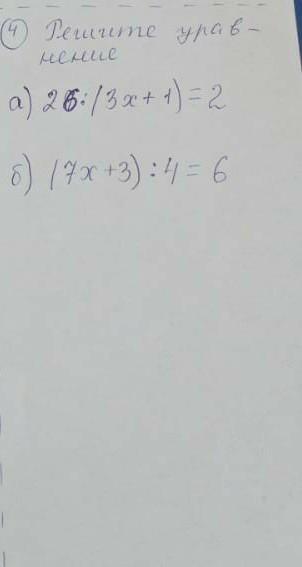 ④ Решите урав-
нение
а) 26:(3x+1)=2
б) (7x+3):4=6